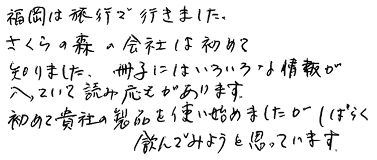 福岡は旅行で行きました。
さくらの森の会社は初めて
知りました、冊子にはいろいろな情報が
入っいて読み応えがあります。
初めて貴社の製品を使い始めましたが しばらく
飲んでみようと思っています。